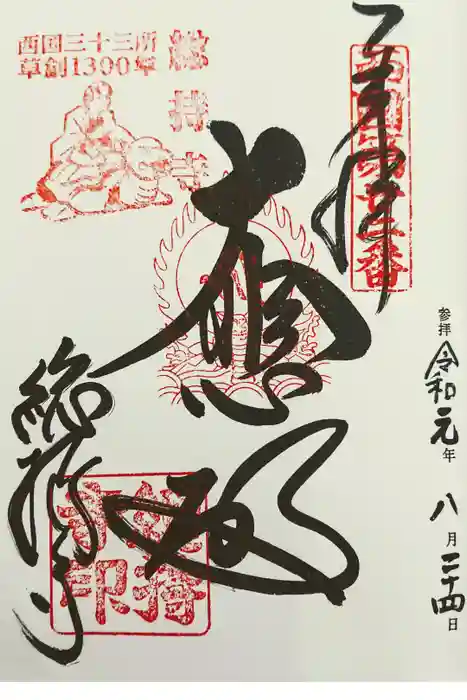 参拝 令和元年 八月二十四日
奉拝
西国第廿二番
大悲殿
總持寺
西国三十三所
草創1300年
総持寺
總持
寺印